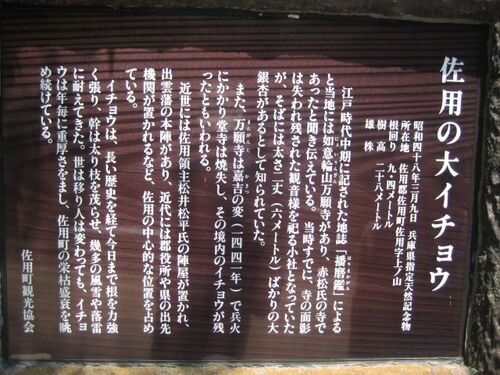 佐用の大イチョウ
昭和四十八年三月九日 兵庫県指定天然記念物
所在地 佐用郡佐用町佐用字上ノ山
根回り 九.四メートル
樹高 二十八メートル
雄株
江戸時代中期に記された地誌「播磨鑑」による
と当地には如意輪山万願寺があり、赤松氏の寺で
あったと聞き伝えている。当時すでに、寺の面影
は失われ残された観音様を祀る小社となっていた
が、そばには太さ二丈(六メートル)ばかりの大
銀杏があるとして知られていた。
また、万願寺は嘉吉の変(一四四一年)で兵火
にかかり堂寺は焼失し、その境内のイチョウが残
ったともいわれる。
近世には佐用領主松井松平氏の陣屋が置かれ、
出雲藩の本陣があり、近代には郡役所や県の出先
機関が置かれるなど、佐用の中心的な位置を占め
ている。
イチョウは、長い歴史を経て今日まで根を力強
く張り、幹は太り枝を茂らせ、幾多の風雪や落雷
に耐えてきた。世は移り人は変わっても、イチョ
ウは年毎に重厚さをまし、佐用町の栄枯盛衰を眺
め続けている。
佐用町観光協会